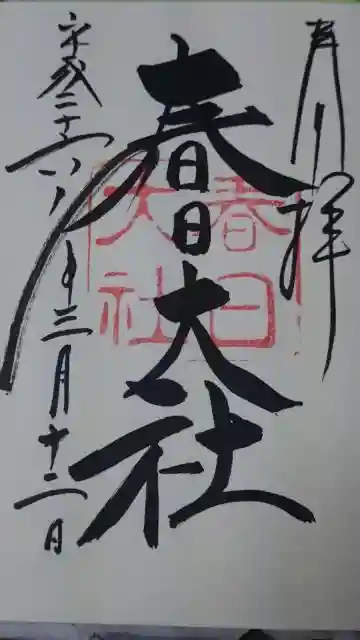 奉拝
春日大社
平成二十八年三月十二日
春日
大社